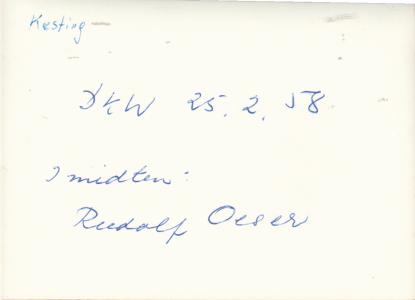 Kesting
DKW 25.2.58
I midten:
Rudolf Oeser